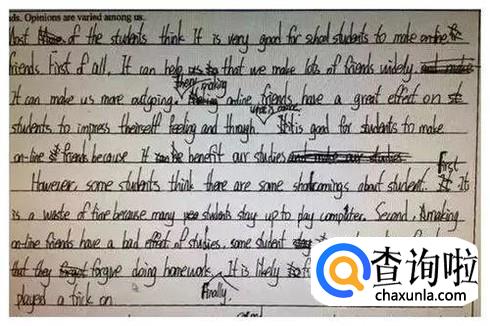 ds. Opinions are varied among us.
Most of the students think It is very good for school students to make on-line
friends. First of all, It can help us that we make lots of friends widely
It can make us more outgoing. then making on-line friends have a great effect on
students to impress theirself feeling and through what is more It is good for students to make
on-line friends because It can benefit our studies and make our studies
However, some students think there are some shortcomings about student. First It
is a waste of time because many students stay up to play computer. Second, making
on-line friends have a bad effect of studies. some student
that they forgot forgive doing homework. It is likely
played a trick on. Finally.
查询啦
chaxunla.com